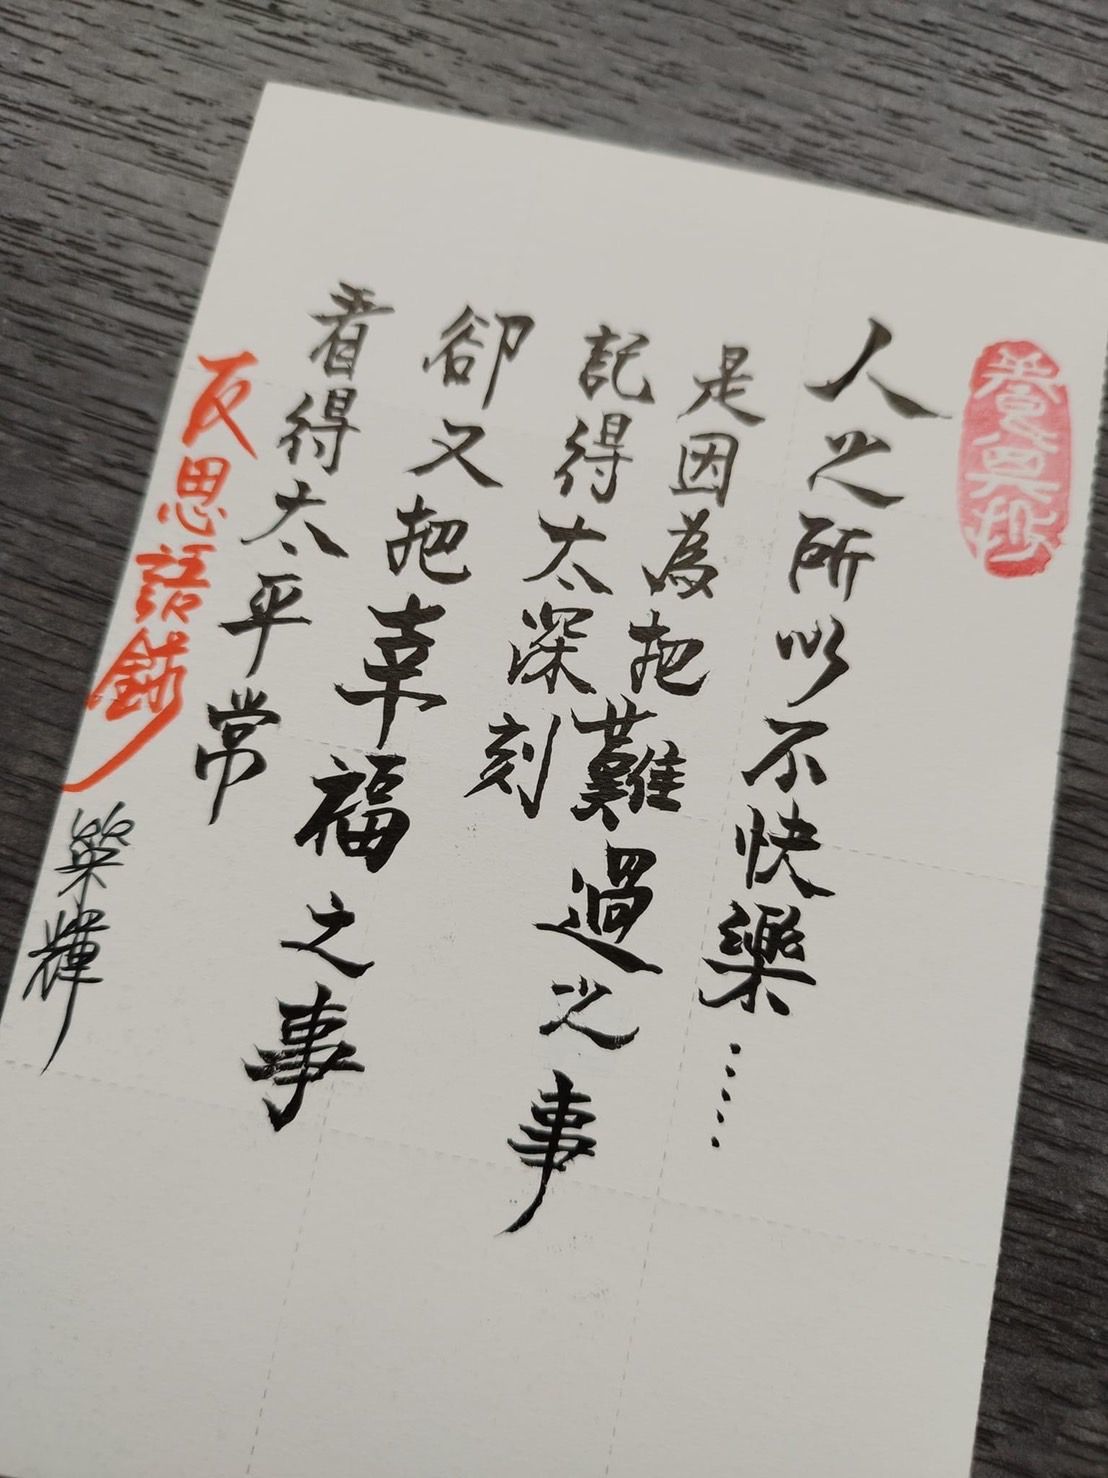 人之所以不快樂……
是因為把難過之事
記得太深刻
卻又把幸福之事
看得太平常
反思語錄
榮輝